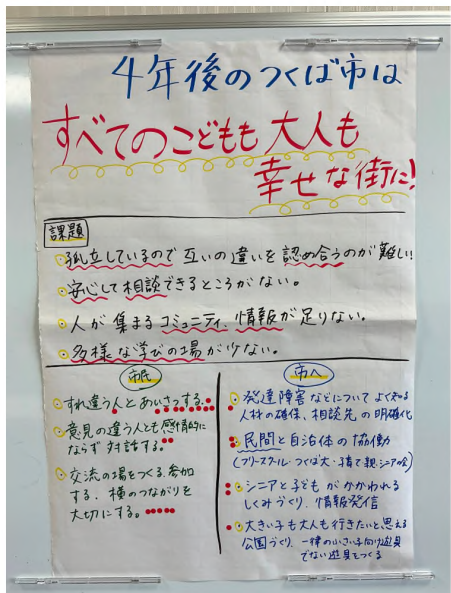 4年後のつくば市は
すべてのこどもも大人も
幸せな街に!
課題
孤立しているので互いの違いを認め合うのが難しい!
安心して相談できるところがない。
人が集まるコミュニティ、情報が足りない。
多様な学びの場が少ない。
市民
すれ違う人とあいさつする。
意見の違う人とも感情的に
ならず対話する。
交流の場をつくる、参加
する、横のつながりを
大切にする。
市へ
発達障害などについてよく知る
人材の確保、相談先の明確化
民間と自治体の協働
(フリースクール・つくば大・子育て親・シニアの会)
シニアと子どもがかかわれる
しくみづくり、情報発信
大きい子も大人も行きたいと思える
公園づくり、一律の小さい子向け遊具
でない遊具をつくる